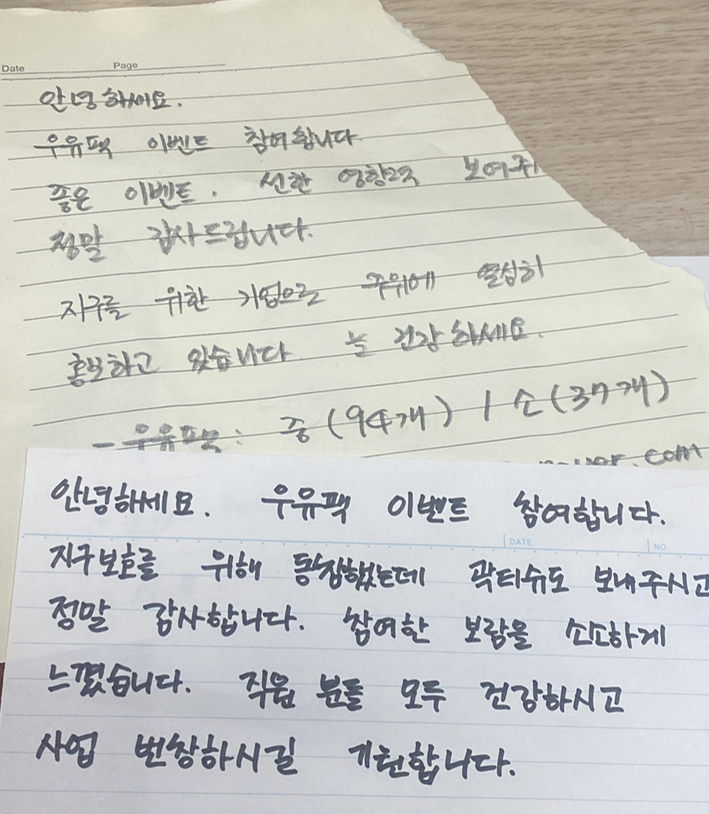 Date Page
안녕하세요.
우유팩 이벤트 참여합니다
좋은 이벤트. 선한 영향력 보여주
정말 감사드립니다.
지구를 위한 기업으로 주위에 열심히
홍보하고 있습니다 늘 건강하세요.
- 우유팩: 중(94개) / 소(37개)
.com
안녕하세요. 우유팩 이벤트 참여합니다.
DATE NO.
지구보호를 위해 동참했는데 곽티슈도 보내주시고
정말 감사합니다. 참여한 보람을 소소하게
느꼈습니다. 직원 분들 모두 건강하시고
사업 번창하시길 기원합니다.